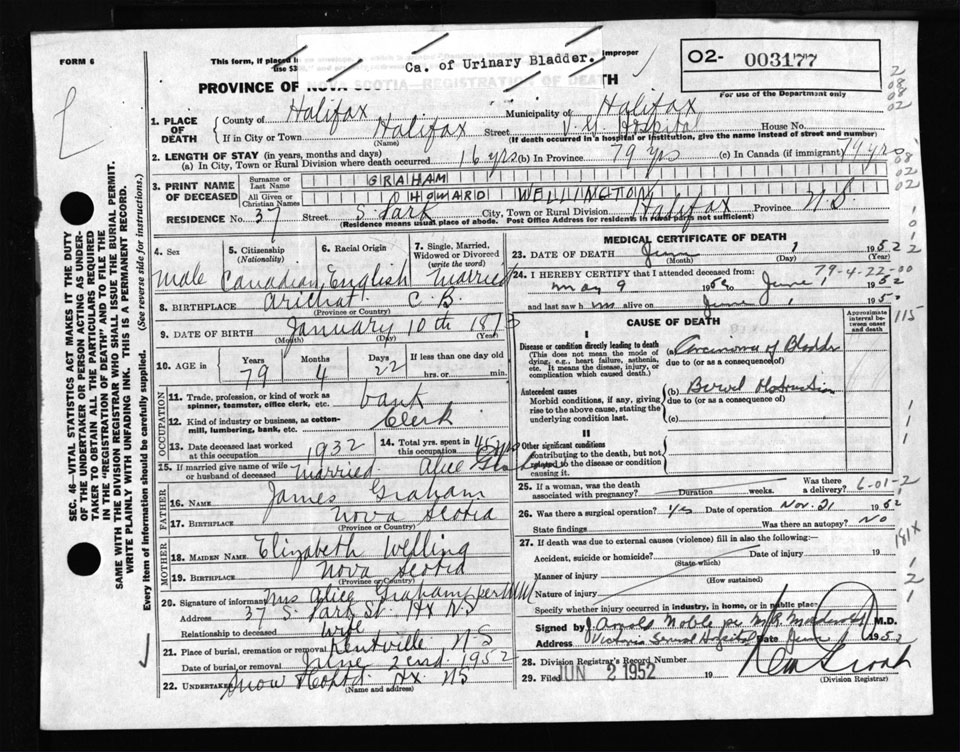 FORM 6
This form, if placed in
use $3
Ca. of Urinary Bladder.
improper
O2- 003177
For use of the Department only
PROVINCE OF NOVA SCOTIA—REGISTRATION OF DEATH
1. PLACE OF DEATH
County of Halifax Municipality of Halifax
If in City or Town Halifax Street V. G. Hospital House No.
(Name) (If death occurred in a hospital or institution, give the name instead of street and number)
2. LENGTH OF STAY (in years, months and days)
(a) In City, Town or Rural Division where death occurred 16 yrs (b) In Province 79 yrs (c) In Canada (if immigrant) 79 yrs
3. PRINT NAME OF DECEASED
Surname or Last Name GRAHAM
All Given or Christian Names HOWARD WELLINGTON
RESIDENCE No. 37 Street S. Park City, Town or Rural Division Halifax Province N.S.
(Residence means usual place of abode. Post Office Address for residents in rural parts not sufficient)
4. Sex Male
5. Citizenship (Nationality) Canadian
6. Racial Origin English
7. Single, Married, Widowed or Divorced (write the word) Married
8. BIRTHPLACE Arichat C.B.
(Province or Country)
9. DATE OF BIRTH January 10th 1873
(Month) (Day) (Year)
10. AGE in Years 79 Months 4 Days 22 If less than one day old hrs. or min.
OCCUPATION
11. Trade, profession, or kind of work as spinner, teamster, office clerk, etc. bank
12. Kind of industry or business, as cotton-mill, lumbering, bank, etc. Clerk
13. Date deceased last worked at this occupation 1932
14. Total yrs. spent in this occupation 45 yrs
15. If married give name of wife or husband of deceased married. Alice
FATHER
16. NAME James Graham
17. BIRTHPLACE Nova Scotia
(Province or Country)
MOTHER
18. MAIDEN NAME Elizabeth Welling
19. BIRTHPLACE Nova Scotia
(Province or Country)
20. Signature of informant Mrs Alice Graham per
Address 37 S. Park St. Hx N.S
Relationship to deceased wife
21. Place of burial, cremation or removal Kentville N.S
Date of burial or removal June 2nd. 1952
22. Undertaker Snow & Co Ltd. Hx. NS
(Name and address)
MEDICAL CERTIFICATE OF DEATH
23. DATE OF DEATH June 1 1952
(Month) (Day)
79-4-22-00
24. I HEREBY CERTIFY that I attended deceased from:
May 9 1952 to June 1 1952
and last saw h im alive on June 1, 1952
CAUSE OF DEATH
Approximate interval between onset and death
I
Disease or condition directly leading to death
(This does not mean the mode of dying, e.g., heart failure, asthenia, etc. It means the disease, injury, or complication which caused death.)
(a) Carcinoma of Bladder
due to (or as a consequence of)
Antecedent causes
Morbid conditions, if any, giving rise to the above cause, stating the underlying condition last.
(b) Bowel Obstruction
due to (or as a consequence of)
(c)
II
Other significant conditions
contributing to the death, but not related to the disease or condition causing it.
25. If a woman, was the death associated with pregnancy? Duration weeks. Was there a delivery? 6-01-2
26. Was there a surgical operation? Yes Date of operation Nov. 21 1952
State findings Was there an autopsy? No
27. If death was due to external causes (violence) fill in also the following:
Accident, suicide or homicide? Date of injury 19
(State which)
Manner of injury
(How sustained)
Nature of injury
Specify whether injury occurred in industry, in home, or in public place
Signed by J. Arnold Noble per M.D.
Address Victoria General Hospital Date June 1 1952
28. Division Registrar's Record Number
29. Filed JUN 2 1952 19
(Division Registrar)
SEC. 46—VITAL STATISTICS ACT MAKES IT THE DUTY OF THE UNDERTAKER OR PERSON ACTING AS UNDERTAKER TO OBTAIN ALL THE PARTICULARS REQUIRED IN THE "REGISTRATION OF DEATH" AND TO FILE THE SAME WITH THE DIVISION REGISTRAR WHO SHALL ISSUE THE BURIAL PERMIT.
WRITE PLAINLY WITH UNFADING INK. THIS IS A PERMANENT RECORD.
Every item of information should be carefully supplied. (See reverse side for instructions.)
2
08
08
02
08
02
1
0
1
2
115
1
1
1
181X
1
2
1